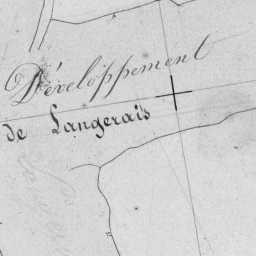 Développement
de Langerais